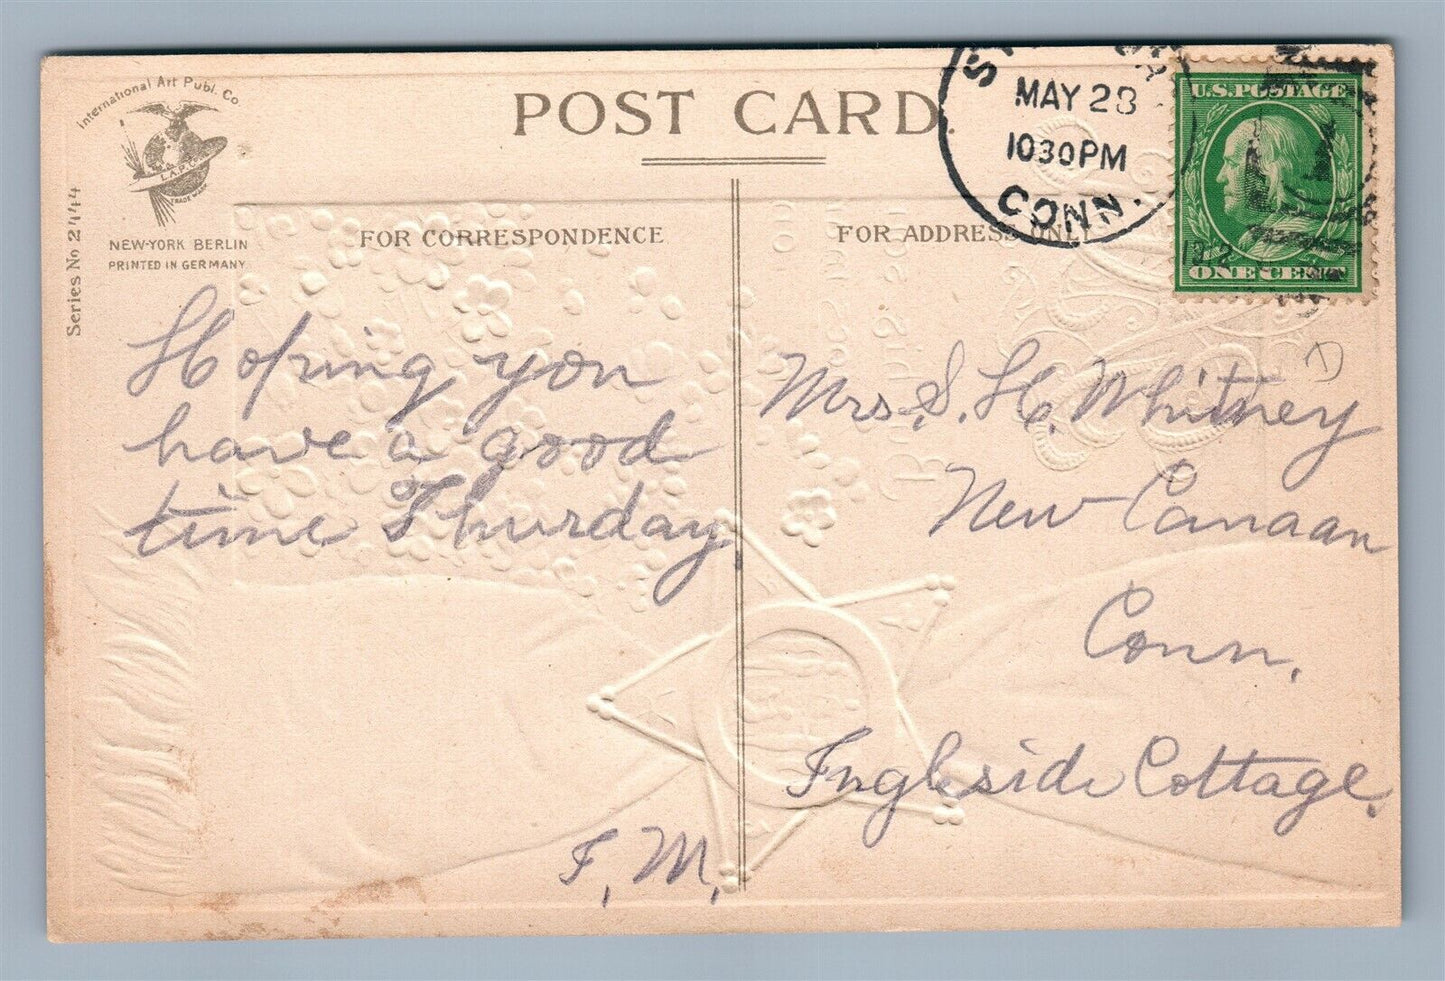 International Art Publ. Co.
I.A.P.C.
TRADE MARK
NEW-YORK BERLIN
PRINTED IN GERMANY
Series No 2444
POST CARD.
FOR CORRESPONDENCE
FOR ADDRESS ONLY
MAY 28
10 30 PM
CONN.
U.S. POSTAGE
1912
ONE CENT
Hoping you
have a good
time Thurday.
F. M.
Mrs. S. H. Whitney
New Canaan
Conn.
Ingleside Cottage.